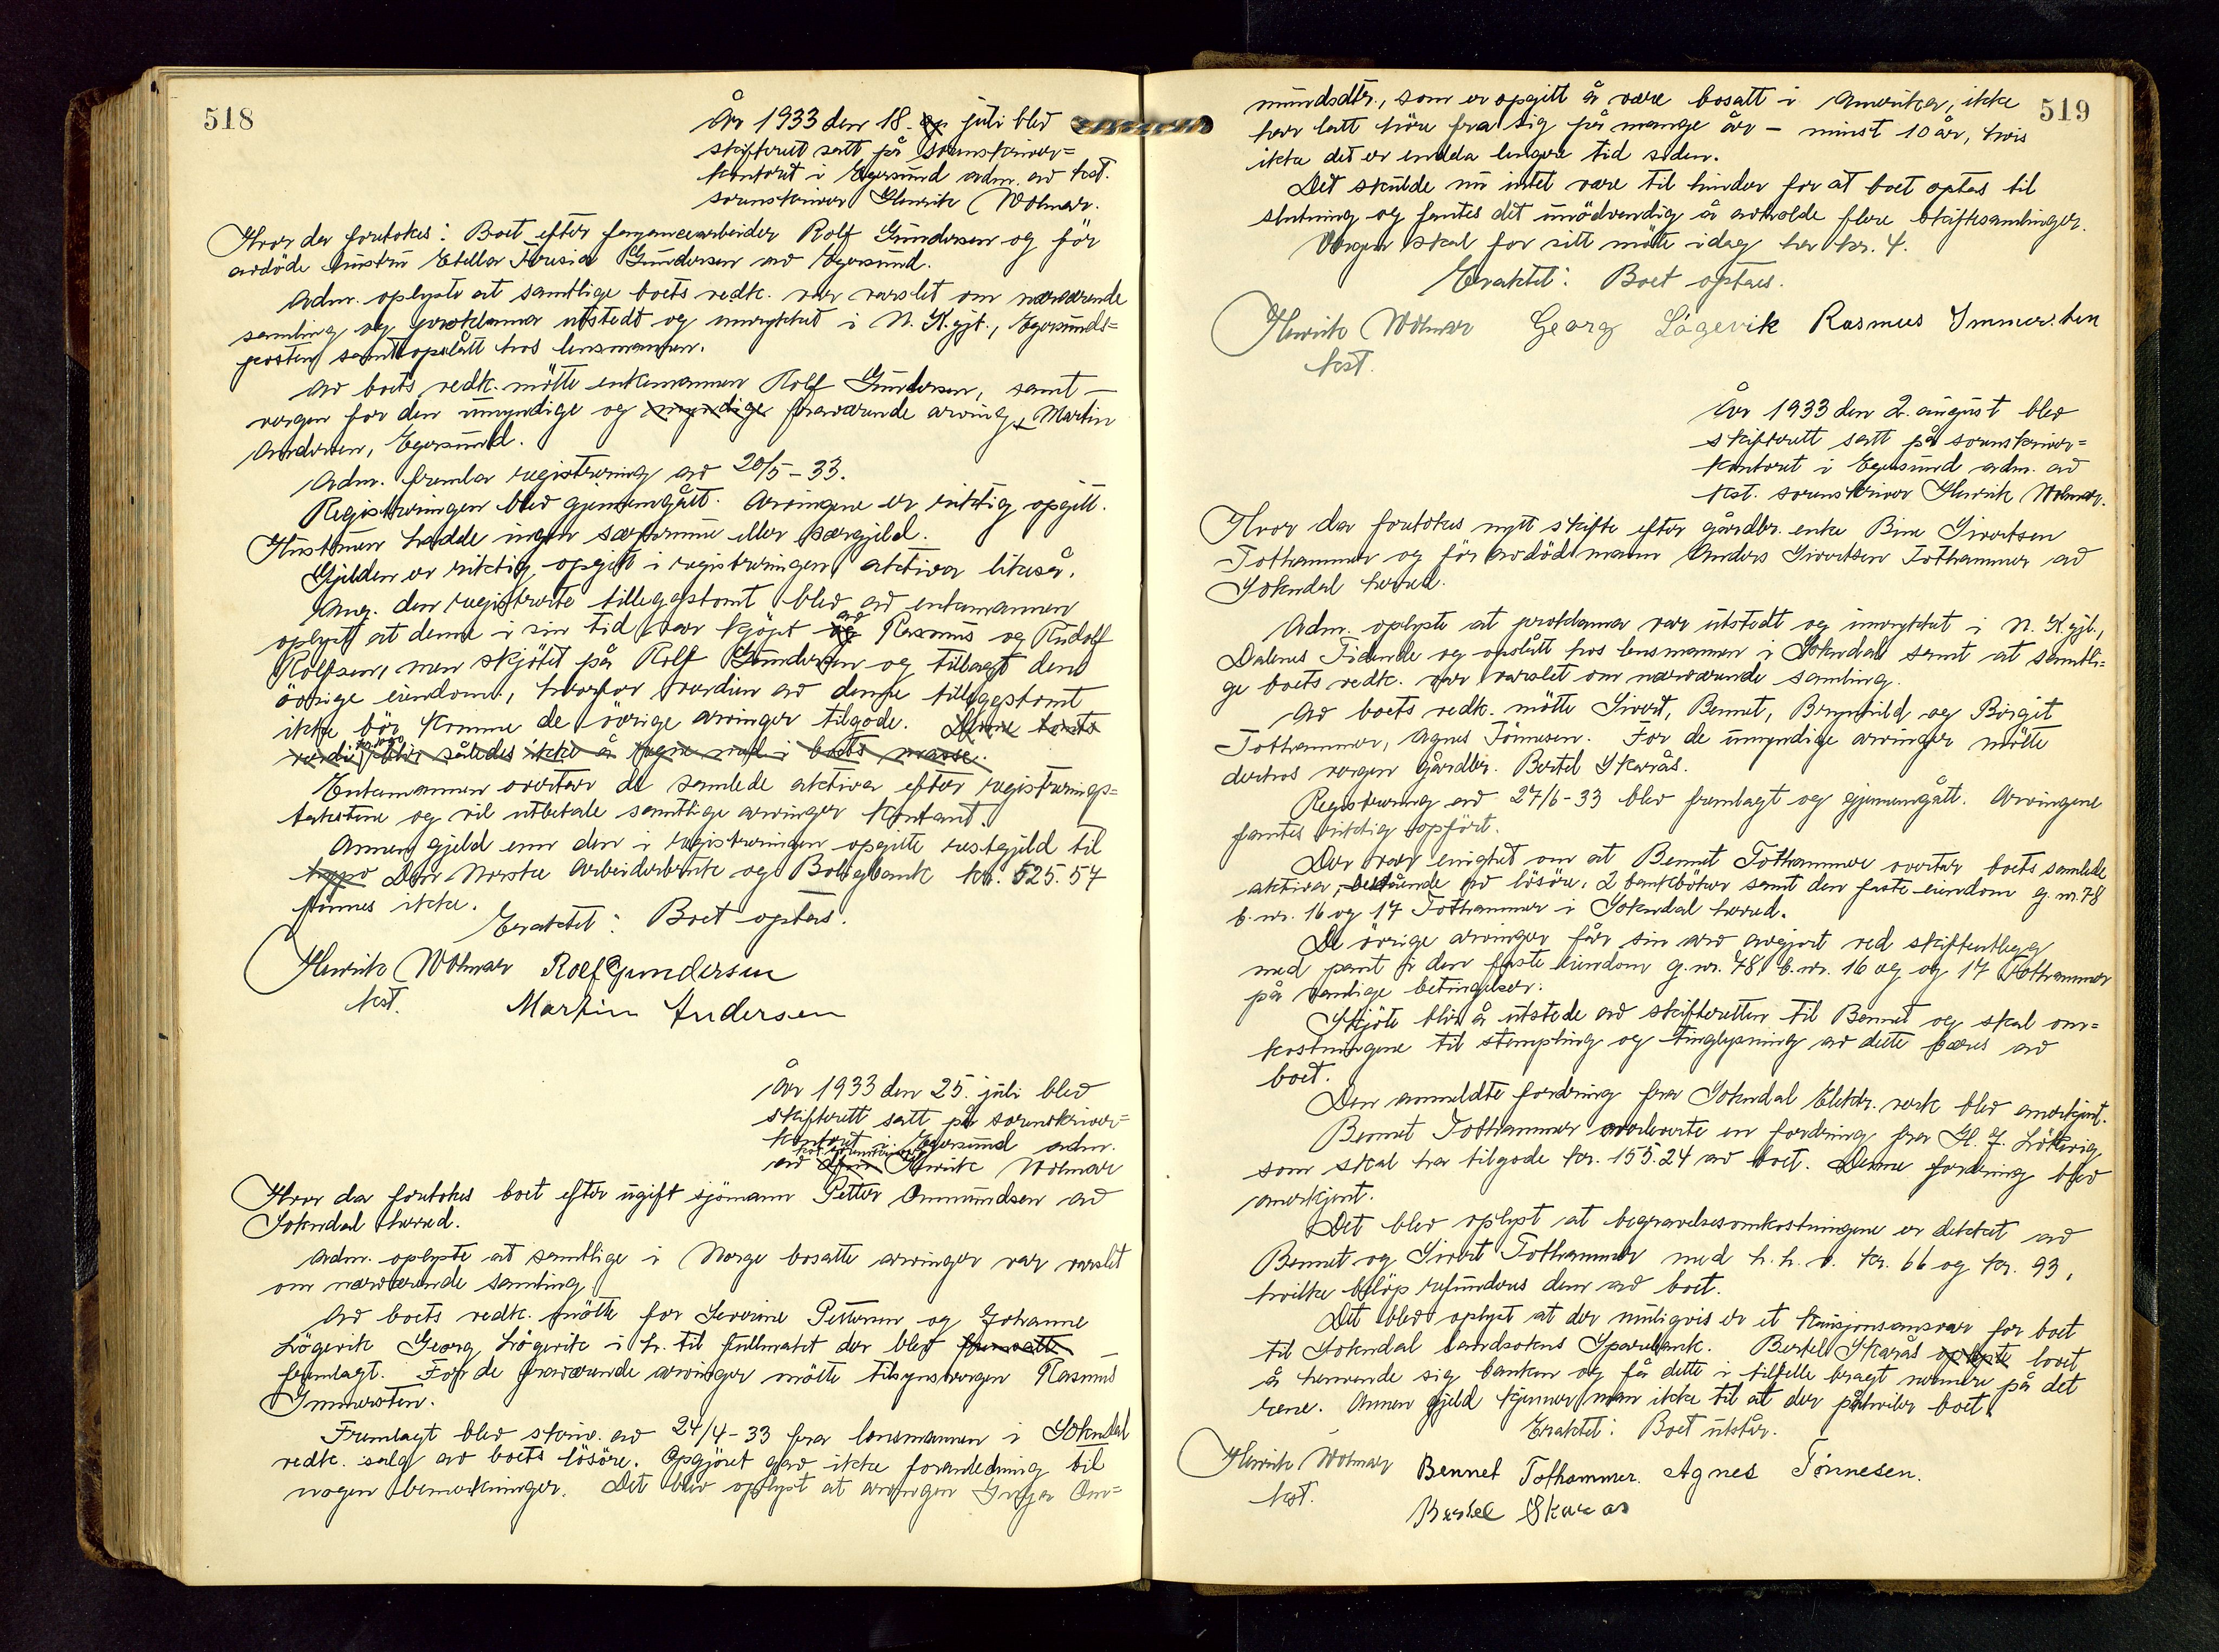 518
År 1933 den 18. juli blev
skifterett satt på sorenskriver=
kontoret i Egersund adm. av kst.
sorenskriver Henrik Wolmar.
Hvor da foretokes: Boet efter fayancearbeider Rolf Gundersen og før
avdöde hustru Etella Teresia Gundersen av Egersund.
Adm. oplyste at samtlige boets vedk. var varslet om nærværende
samling og proklama utstedt og inrykket i N. K.gjt., Egersunds=
posten samt opslått hos lensmannen.
Av boets vedk. mötte enkemannen Rolf Gundersen, samt
vergen for den umyndige og myndige fraværende arving, Martin
Andersen, Egersund.
Adm. fremla registrering av 20/5-33.
Registreringen blev gjennemgått. Arvingene er riktig opgitt.
Hustruen hadde ingen særformue eller særgjeld.
Gjelden er riktig opgitt i registreringen, aktiva likeså.
Ang. den registrerte tilleggstomt blev av enkemannen
oplyst at denne i sin tid var kjöpt av Rasmus og Rudolf
Rolfsen, men skjötet på Rolf Gundersen og tillagt den
övrige eiendom, hvorfor verdien av denne tilleggstomt
ikke bör komme de övrige arvinger tilgode. Denne tomts
verdi blir således ikke å regne med i boets masse.
Enkemannen overtar de samlede aktiva efter registrerings=
takstene og vil utbetale samtlige arvinger kontant.
Annen gjeld enn den i registreringen opgitte restgjeld til
Den Norske Arbeiderbruk og Boligbank kr. 525.57
finnes ikke.
Eraktet: Boet optas.
Henrik Wolmar Rolf Gundersen
kst. Martin Andersen
År 1933 den 25. juli blev
skifterett satt på sorenskriver=
kontoret i Egersund adm.
av kst. sorenskriver Henrik Wolmar
Hvor da foretokes boet efter ugift sjömann Petter Ommundsen av
Sokndal herred.
Adm. oplyste at samtlige i Norge bosatte arvinger var varslet
om nærværende samling.
Av boets vedk. mötte for Severine Pettersen og Johanne
Lögevik Georg Lögevik i h. til fullmakt der blev fremsatte
fremlagt. For de fraværende arvinger mötte tilsynsvergen Rasmus
Immersten.
Fremlagt blev skriv. av 24/4-33 fra lensmannen i Sokndal
vedk. salg av boets lösöre. Opgjöret gav ikke foranledning til
nogen bemerkninger. Det blev oplyst at arvingen Inga Om=
519
mundsdtr., som er opgitt å være bosatt i Amerika, ikke
har latt höre fra sig på mange år - minst 10 år, hvis
ikke det er endda lengere tid siden.
Det skulde nu intet være til hinder for at boet optas til
slutning og fantes det unödvendig å avholde flere skiftesamlinger.
Vergen skal for sitt möte idag ha kr. 4.
Eraktet: Boet optas.
Henrik Wolmar Georg Lögevik Rasmus Immersten
kst.
År 1933 den 2. august blev
skifterett satt på sorenskriver=
kontoret i Egersund adm. av
kst. sorenskriver Henrik Wolmar.
Hvor da foretokes nytt skifte efter gårdbr. enke Bine Sivertsen
Tothammer og för avdöd mann Anders Sivertsen Tothammer av
Sokndal herred.
Adm. oplyste at proklama var utstedt og inrykket i N. K.gjt.,
Dalenes Tidende og opslått hos lensmannen i Sokndal samt at samtli=
ge boets vedk. var varslet om nærværende samling.
Av boets vedk. mötte Sivert, Bennet, Brynhild og Birgit
Tothammer, Agnes Tönnesen. For de umyndige arvinger mötte
derhos vergen gårdbr. Bertel Skarås.
Registrering av 27/6-33 blev fremlagt og gjennemgått. Arvingene
fantes riktig opfört.
Der var enighet om at Bennet Tothammer overtar boets samlede
aktiva, bestående av lösöre, 2 bankböker samt den faste eiendom g.nr. 78
b.nr. 16 og 17 Tothammer i Sokndal herred.
De övrige arvinger får sin arv avgjort ved skifteutlegg
med pant i den faste eiendom g.nr. 78, b.nr. 16 og og 17 Tothammer
på vanlige betingelser.
Skjöte blir å utstede av skifteretten til Bennet og skal om=
kostningene til stempling og tinglysning av dette bæres av
boet.
Den anmeldte fordring fra Sokndal Elektr. verk blev anerkjent.
Bennet Tothammer avleverte en fordring fra H. J. Lökkevig
som skal ha tilgode kr. 155.24 av boet. Denne fordring blev
anerkjent.
Det blev oplyst at begravelsesomkostningene er dekket av
Bennet og Sivert Tothammer med h.h.v. kr. 66 og kr. 93,
hvilke belöp refunderes dem av boet.
Det blev oplyst at der muligvis er et kausjonsansvar for boet
til Sokndal landsokns Sparebank. Bertel Skarås oplyste lovet
å henvende sig banken og få dette i tilfelle bragt nærmere på det
rene. Annen gjeld kjenner man ikke til at der påhviler boet.
Eraktet: Boet utstår.
Henrik Wolmar Bennet Tothammer. Agnes Tönnesen.
kst. Bertel Skaraas